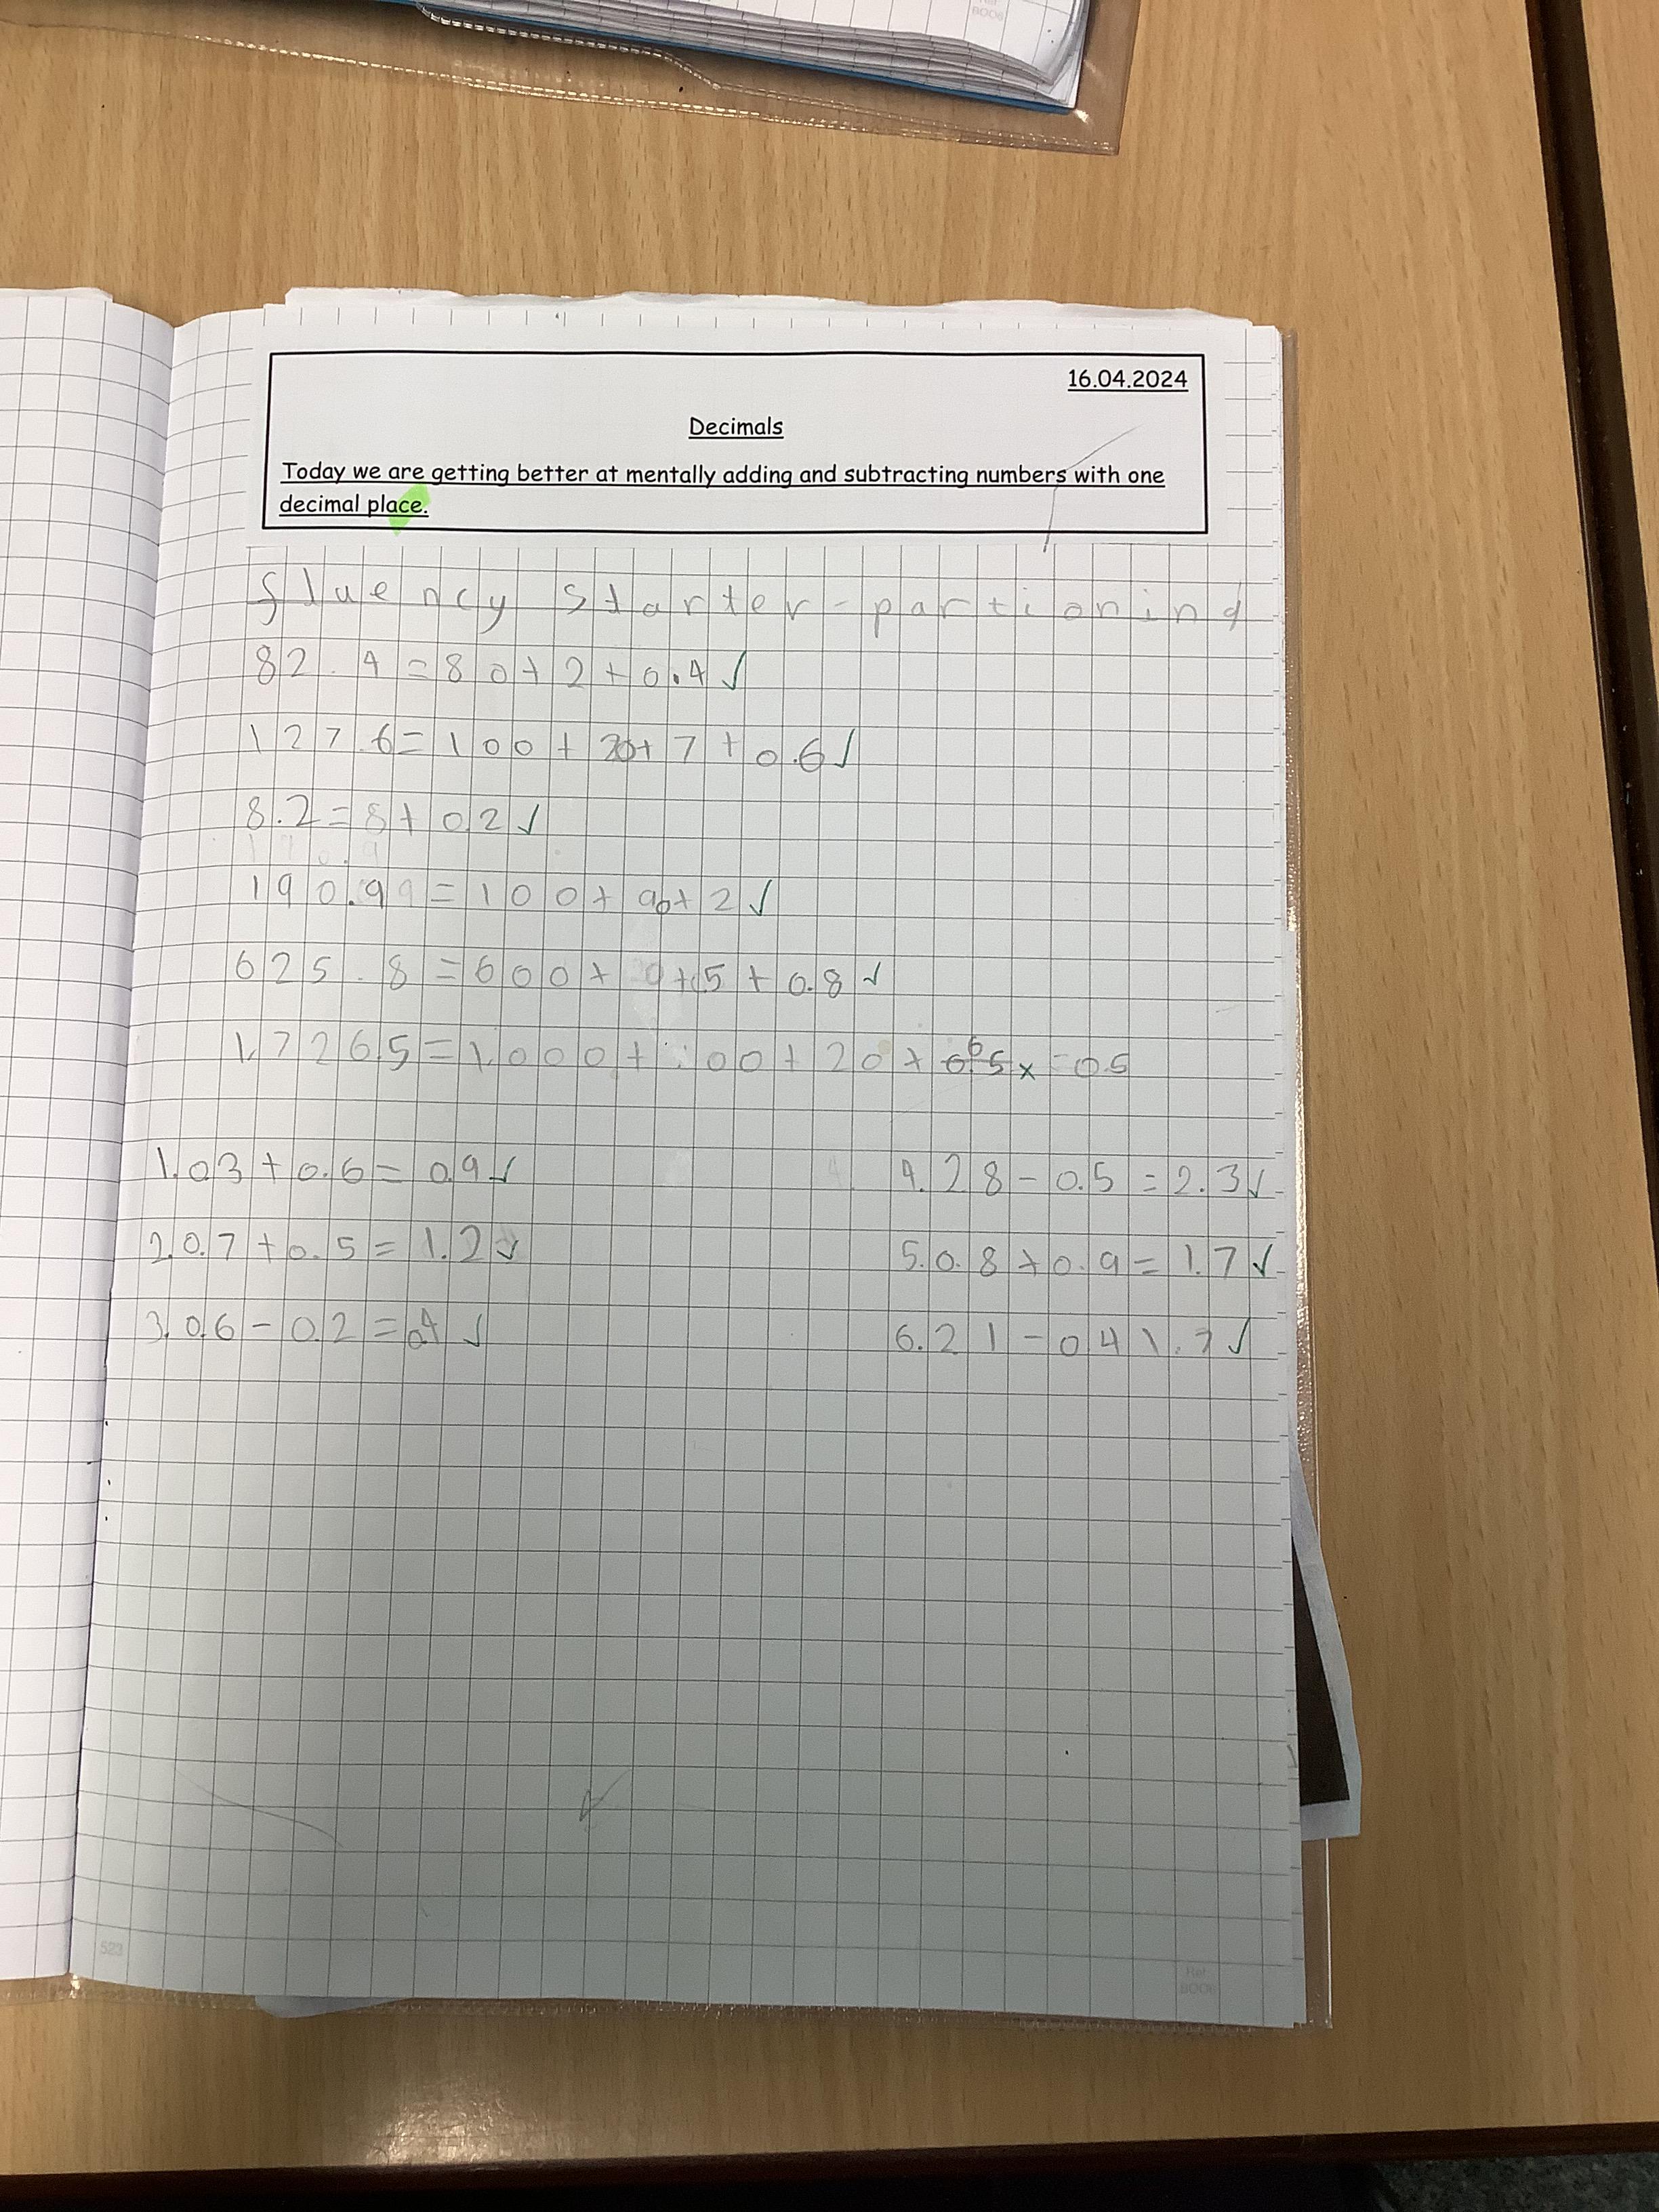 BOOK
16.04.2024
Decimals
Today we are getting better at mentally adding and subtracting numbers with one
decimal place.
fluency starter - partioning
82.4 = 80 + 2 + 0.4 ✓
127.6 = 100 + 20 + 7 + 0.6 ✓
8.2 = 8 + 0.2 ✓
190.99 = 100 + 90 + 2 ✓
625.8 = 600 + + 5 + 0.8 ✓
1,726.5 = 1,000 + 00 + 20 + 6 x = 0.5
1. 0.3 + 0.6 = 0.9 ✓
2. 0.7 + 0.5 = 1.2 ✓
3. 0.6 - 0.2 = 0.4 ✓
4. 2.8 - 0.5 = 2.3 ✓
5. 0.8 + 0.9 = 1.7 ✓
6. 2 1 - 0 4 1.7 ✓
523
Ref:
BOOK